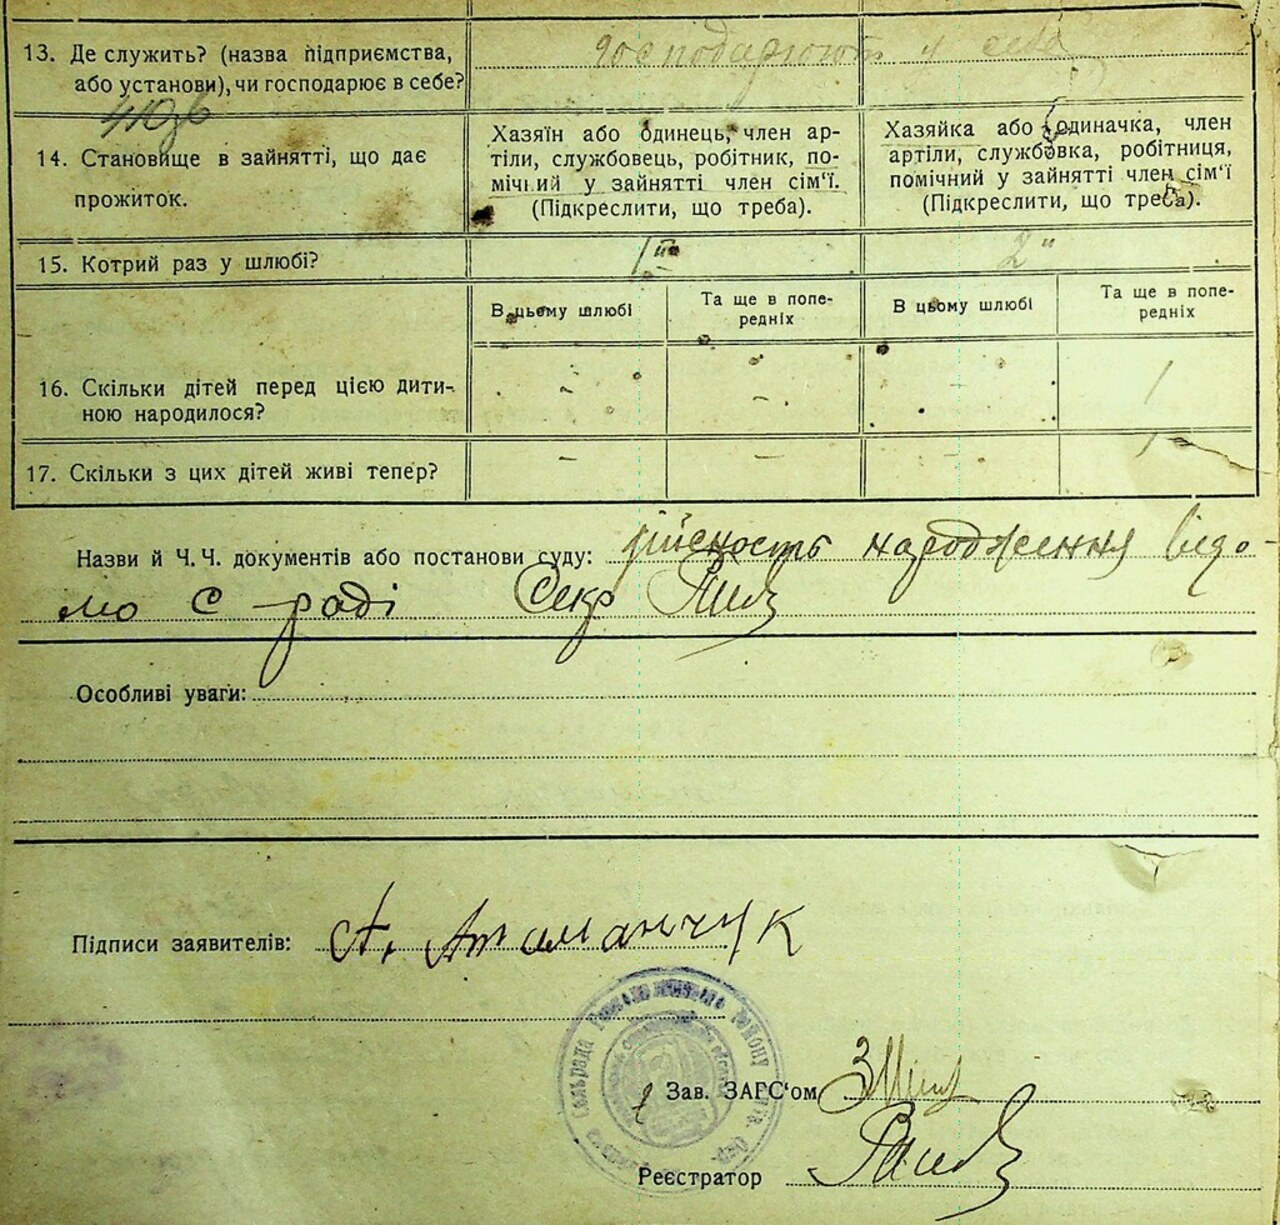 13. Де служить? (назва підприємства,
або установи), чи господарює в себе?
господарюють у себе
14. Становище в зайнятті, що дає
прожиток.
Хазяїн або одинець, член ар-
тіли, службовець, робітник, по-
мічний у зайнятті член сім'ї.
(Підкреслити, що треба).
Хазяйка або одиначка, член
артіли, службовка, робітниця,
помічний у зайнятті член сім'ї
(Підкреслити, що треба).
15. Котрий раз у шлюбі?
1
2
В цьому шлюбі
Та ще в попе-
редніх
В цьому шлюбі
Та ще в попе-
редніх
16. Скільки дітей перед цією дити-
ною народилося?
- - - 1
17. Скільки з цих дітей живі тепер?
- - - 1
Назви й Ч. Ч. документів або постанови суду: дійсность народження відо-
мо с-раді Секр
Особливі уваги:
Підписи заявителів: А. Атаманчук
Сельрада району
Зав. ЗАГС'ом
Реєстратор